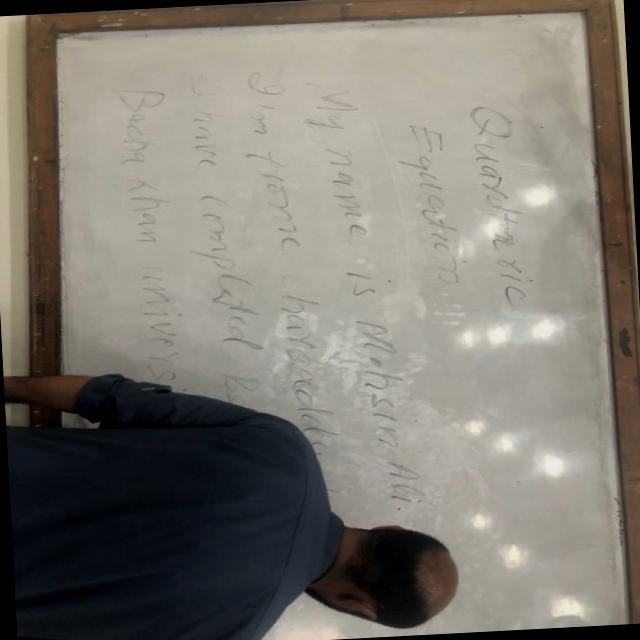 Quadtratic
Equation
My name is Mohsin Ali
I'm from Charsadda
I have completed B
Bacha Khan univers